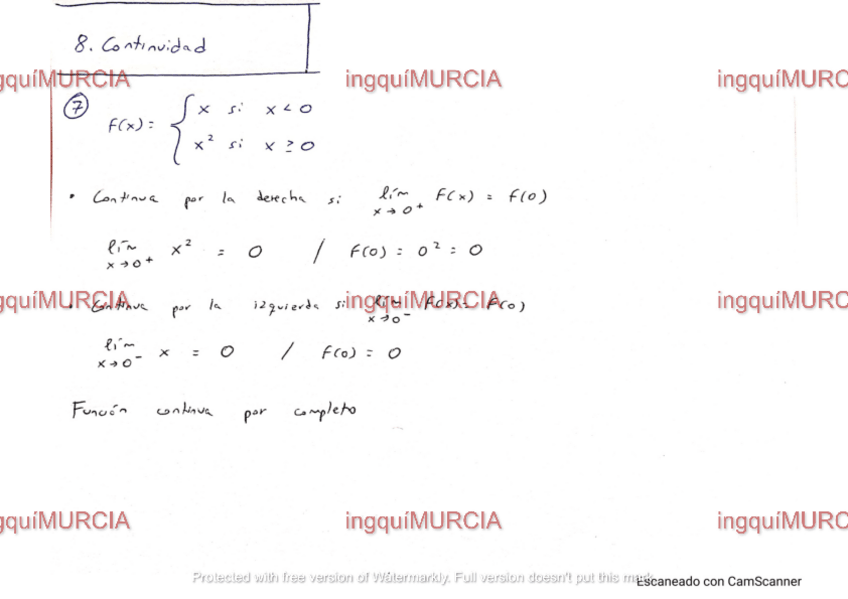 8. Continuidad
ingquíMURCIA ingquíMURCIA ingquíMURC
7
F(x) = { x si x < 0
x² si x ≥ 0
• Continua por la derecha si lím x→0⁺ F(x) = f(0)
lím x→0⁺ x² = 0 / F(0) = 0² = 0
• Continua por la izquierda si lím x→0⁻ F(x) = F(0)
ingquíMURCIA ingquíMURCIA ingquíMURC
lím x→0⁻ x = 0 / F(0) = 0
Función continua por completo
ingquíMURCIA ingquíMURCIA ingquíMURC
Protected with free version of Watermarkly. Full version doesn't put this mark.
Escaneado con CamScanner